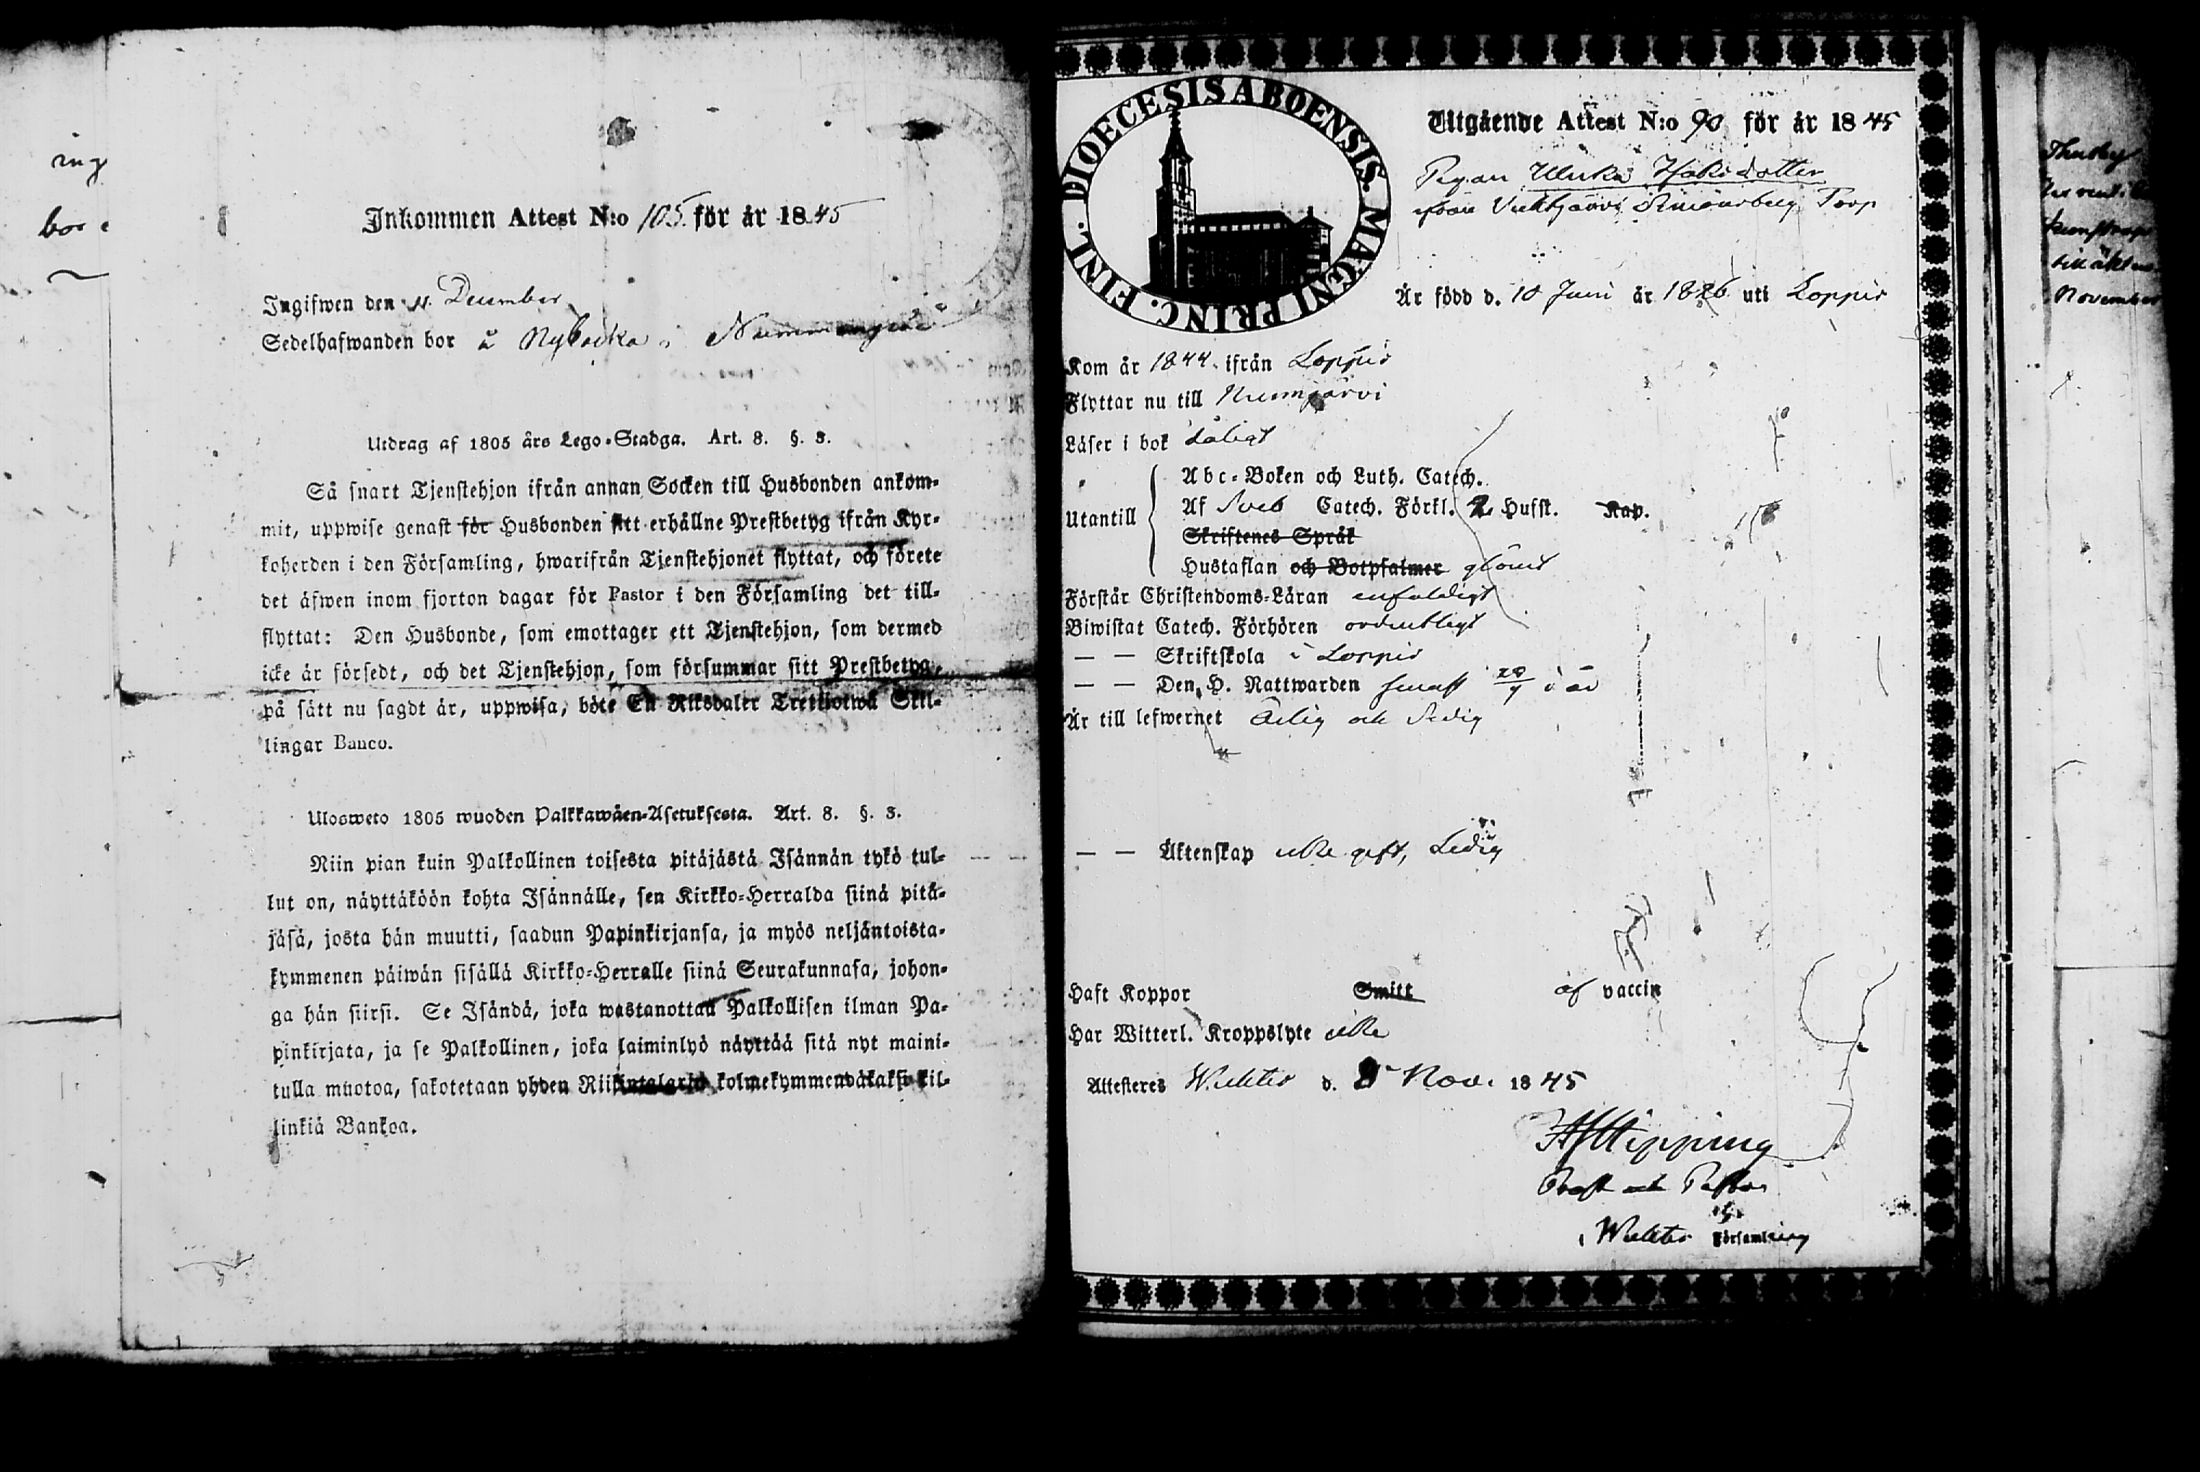 ing
bor
Inkommen Attest N:o 105 för år 1845
Ingifwen den 11 December
Sedelhafwanden bor å Nybacka i
Utdrag af 1805 års Lego-Stadga. Art. 8. §. 3.
Så snart Tjenstehjon ifrån annan Socken till Husbonden ankom-
mit, uppwise genast för Husbonden sitt erhållne Prestbetyg ifrån Kyr-
koherden i den Församling, hwarifrån Tjenstehjonet flyttat, och förete
det äfwen inom fjorton dagar för Pastor i den Församling det till-
flyttat: Den Husbonde, som emottager ett Tjenstehjon, som dermed
icke är försedt, och det Tjenstehjon, som försummar sitt Prestbetyg,
på sätt nu sagdt är, uppwisa, böte En Riksdaler Trettiotwå Skil-
lingar Banco.
Ulosweto 1805 wuoden Palkkawäen-Asetuksesta. Art. 8. §. 3.
Niin pian kuin Palkollinen toisesta pitäjästä Isännän tykö tul-
lut on, näyttäköön kohta Isännälle, sen Kirkko-Herralda siinä pitä-
jäsä, josta hän muutti, saadun Papinkirjansa, ja myös neljäntoista-
kymmenen päiwän sisällä Kirkko-Herralle siinä Seurakunnasa, johon-
ga hän siirsi. Se Isändä, joka wastanottaa Palkollisen ilman Pa-
pinkirjata, ja se Palkollinen, joka laiminlyö näyttää sitä nyt maini-
tulla muotoa, sakotetaan yhden Riikintalarin kolmekymmendäkaksi kil-
linkiä Bankoa.
FINL. DIOECESIS ABOENSIS. MAGNI PRINC.
Utgående Attest N:o 90 för år 1845
Pigan Ulrika
ifrån Torp
Är född d. 10 Juni år 1826 uti Loppis
Kom år 1844 ifrån Loppis
Flyttar nu till Nurmijärvi
Läser i bok dåligt
Abc-Boken och Luth. Catech.
Utantill Af Sveb Catech. Förkl. 2 Hufst. Kap.
Skriftenes Språk
Hustaflan och Botpsalmer glömt
Förstår Christendoms-Läran enfaldigt
Biwistat Catech. Förhören ordentligt
— — Skriftskola i Loppis
— — Den H. Nattwarden senast i år
Är till lefwernet Ärlig och Sedig
— — Äktenskap icke gift, Ledig
Haft Koppor Smitt af vaccin
Har Witterl. Kroppslyte icke
Attesteres Wichtis d. Nov. 1845
Hipping
Prost och Pastor
i Wichtis Församling
November